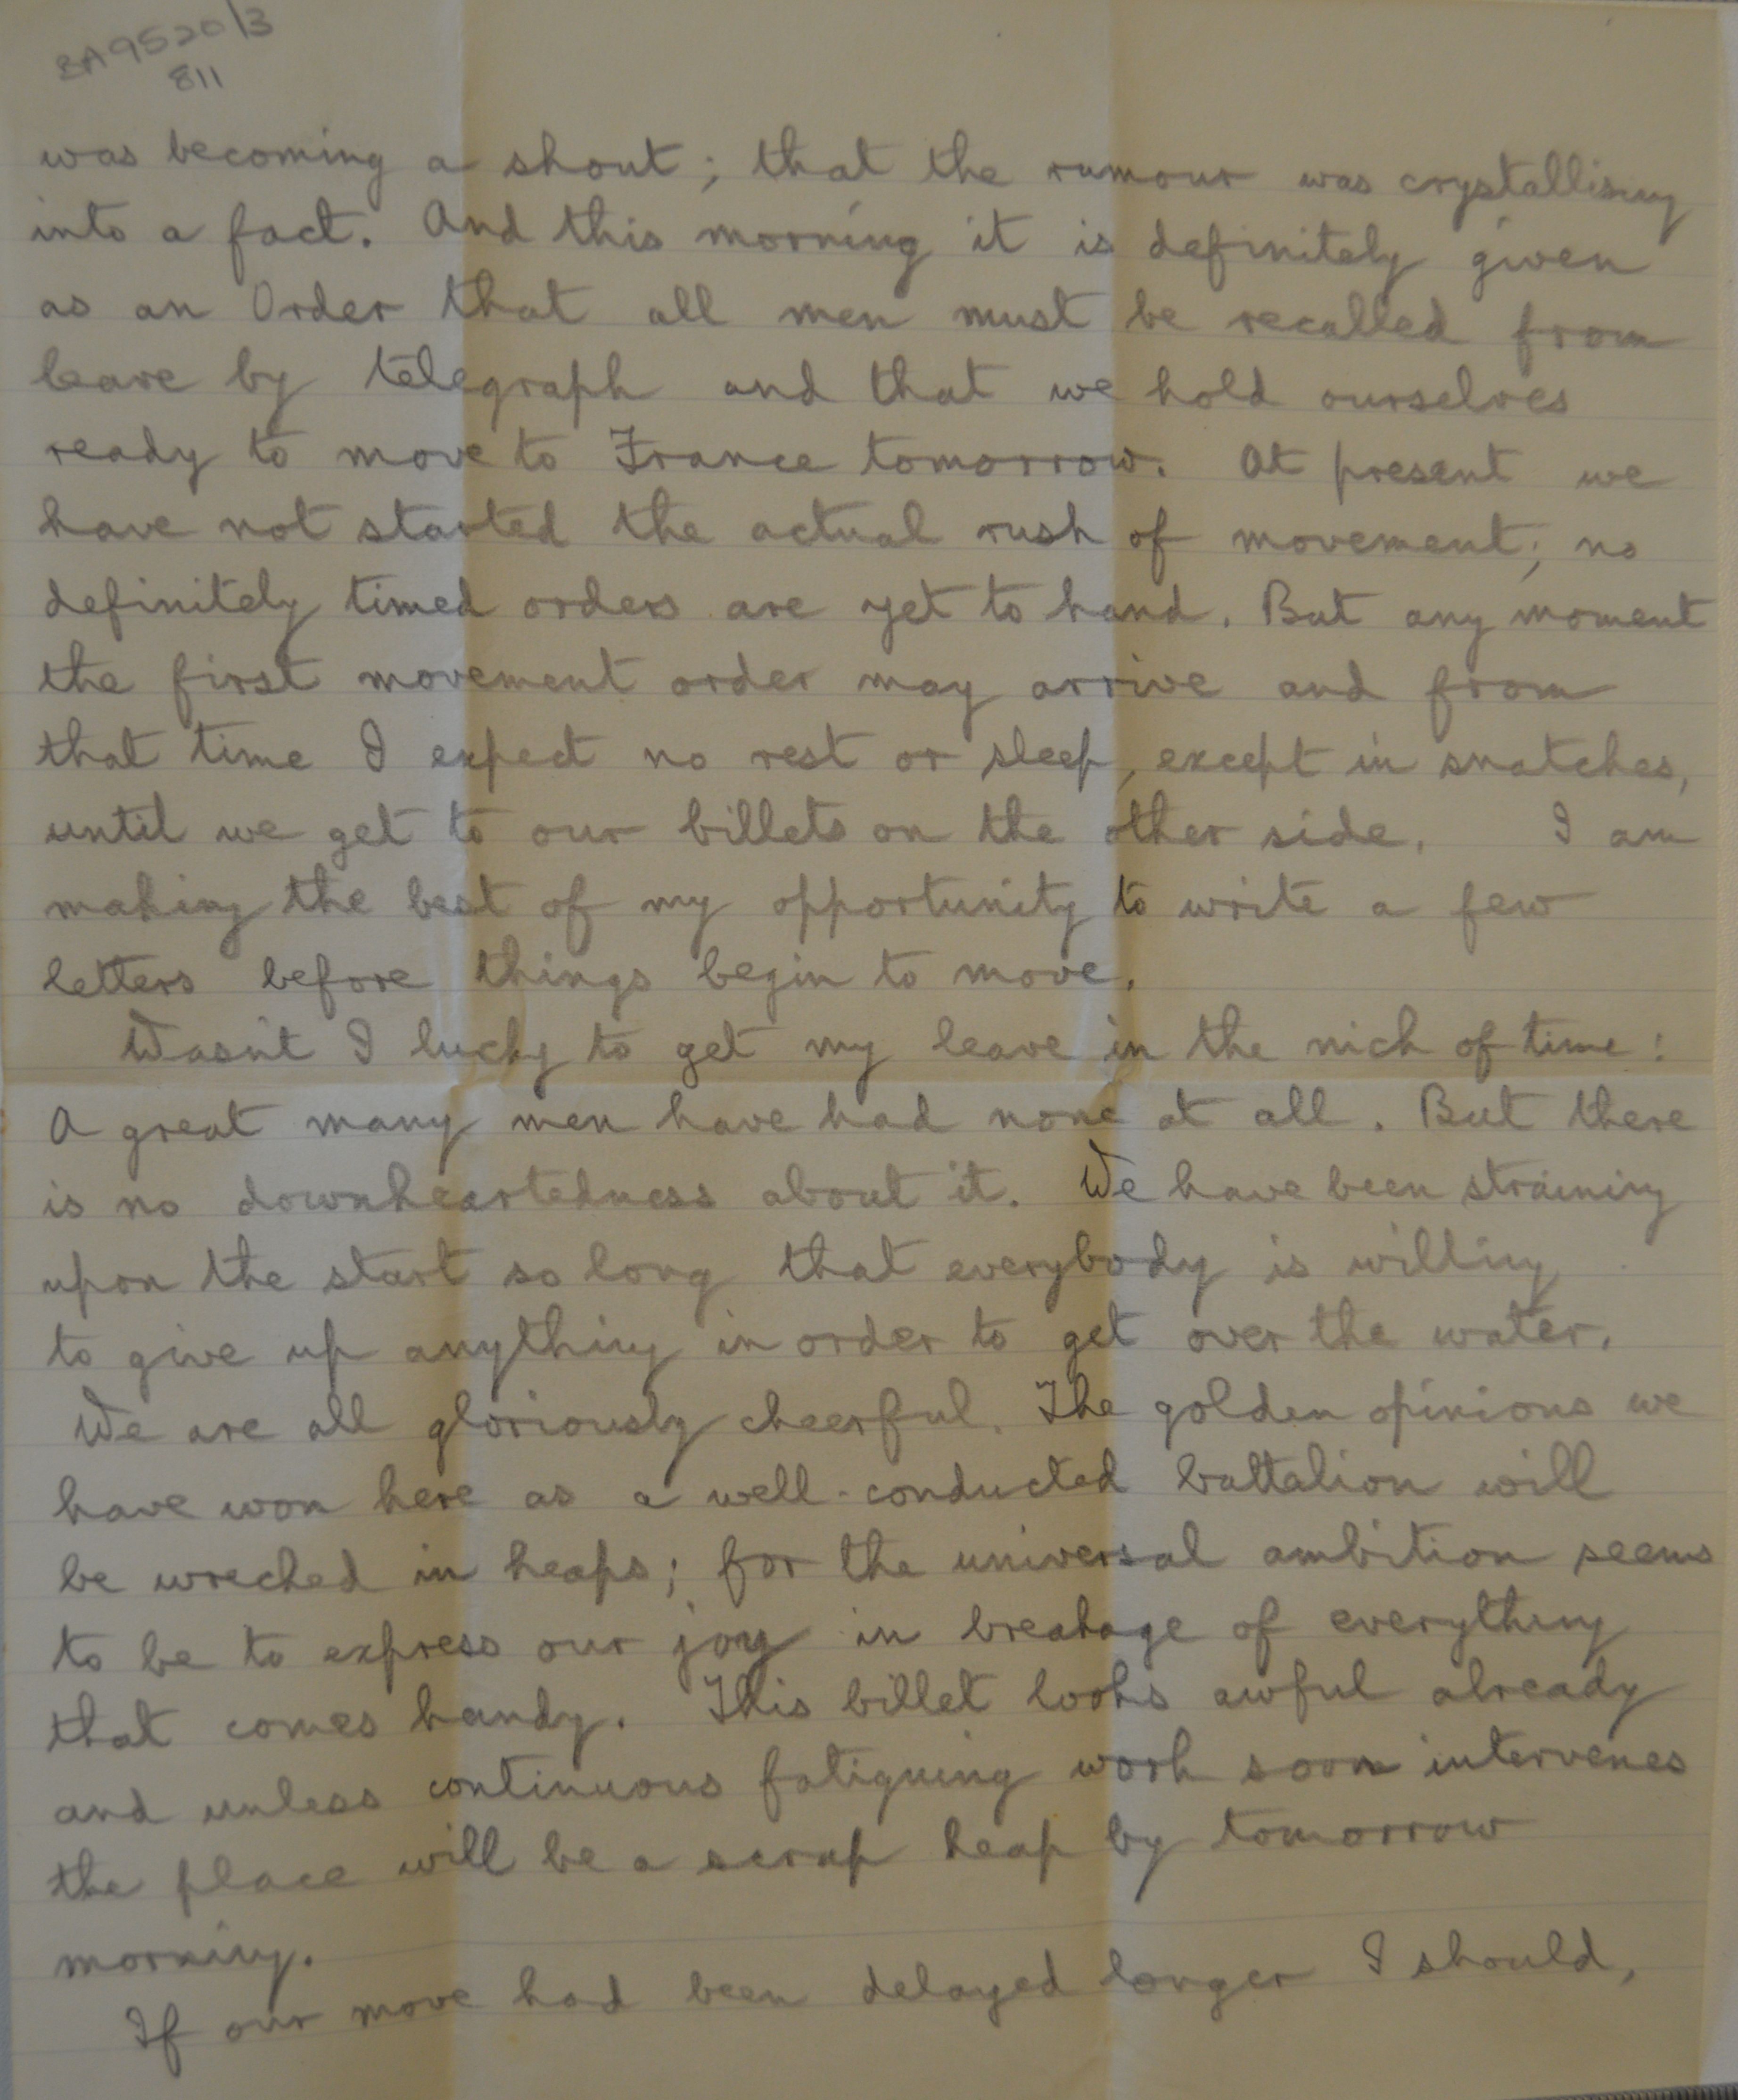 BA9520/3
811
was becoming a shout; that the rumour was crystallising
into a fact. And this morning it is definitely given
as an Order that all men must be recalled from
leave by telegraph and that we hold ourselves
ready to move to France tomorrow. At present we
have not started the actual rush of movement; no
definitely timed orders are yet to hand. But any moment
the first movement order may arrive and from
that time I expect no rest or sleep, except in snatches,
until we get to our billets on the other side. I am
making the best of my opportunity to write a few
letters before things begin to move.
Wasn't I lucky to get my leave in the nick of time:
A great many men have had none at all. But there
is no downheartedness about it. We have been straining
upon the start so long that everybody is willing
to give up anything in order to get over the water.
We are all gloriously cheerful. The golden opinions we
have won here as a well-conducted battalion will
be wrecked in heaps; for the universal ambition seems
to be to express our joy in breakage of everything
that comes handy. This billet looks awful already
and unless continuous fatiguing work soon intervenes
the place will be a scrap heap by tomorrow
morning.
If our move had been delayed longer I should,